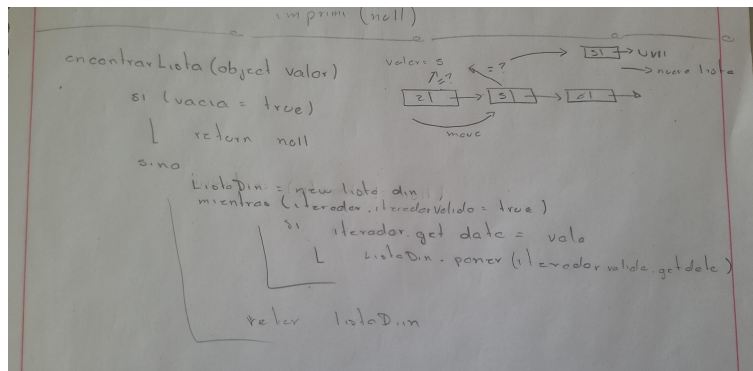 imprimi (null)
encontrarLista (object valor)
si (vacia = true)
return null
sino
ListaDin = new lista din
mientras (iterador.iteradorValido = true)
si iterador.get date = valo
ListaDin.poner (iterador valido.getdate)
reter listaDiin
valor= 5
=?
=?
2
5
6
move
5
null
nueva lista